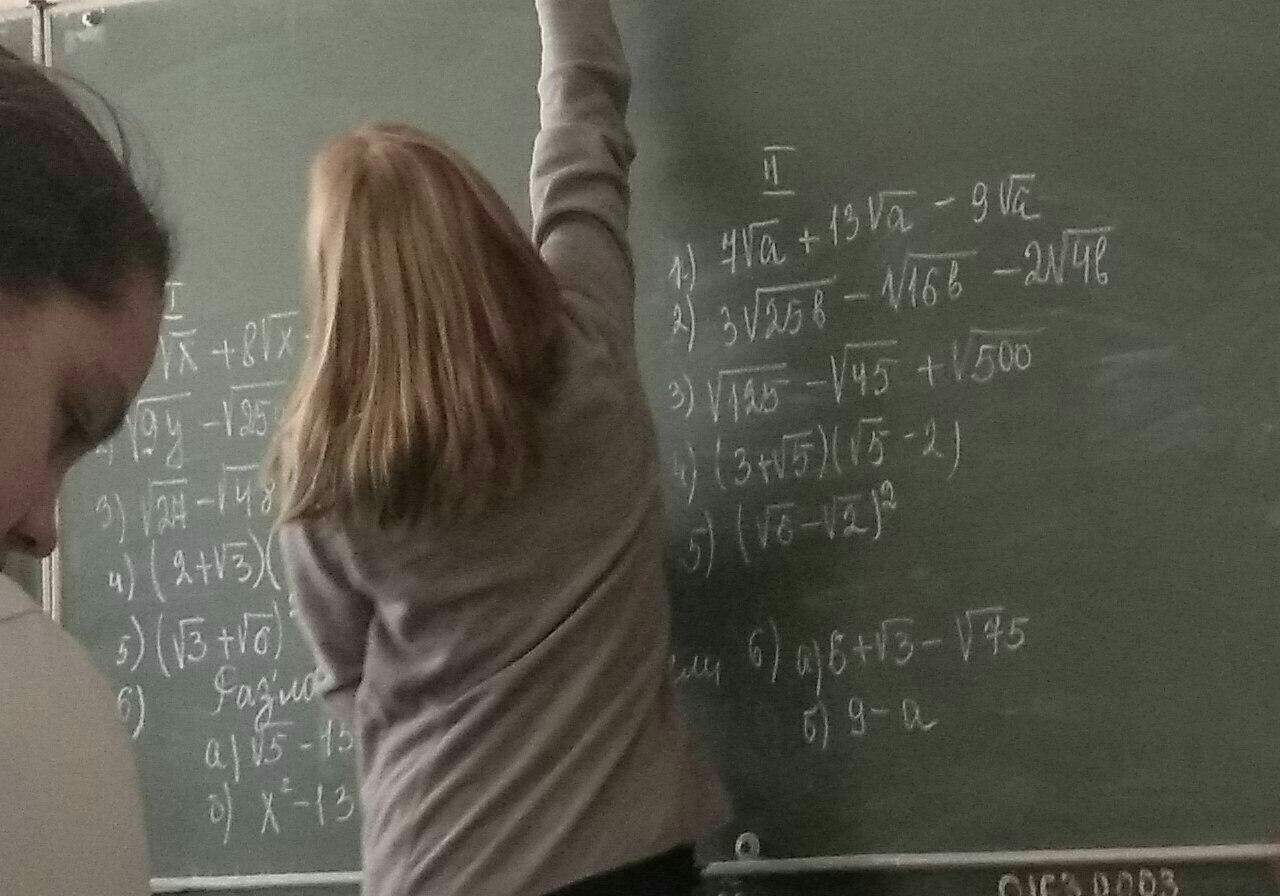 I
√x + 8√x
√9y - √25
3) √27 - √48
4) (2+√3)(
5) (√3+√6)
6)
а) √5 - 13
б) x² - 13
II
1) 7√a + 13√a - 9√a
2) 3√25b - √16b - 2√4b
3) √125 - √45 + √500
4) (3+√5)(√5 - 2)
5) (√6 - √2)²
6) а) 6+√3 - √75
б) 9 - a